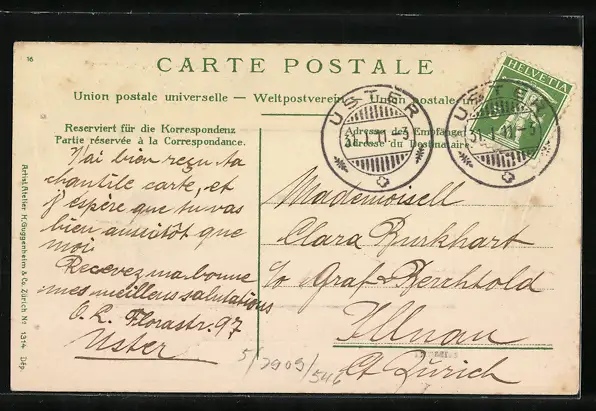 16
CARTE POSTALE
Union postale universelle — Weltpostverein — Union postale
HELVETIA
USTER
31.1.11-3
USTER
31.1.11-3
Reserviert für die Korrespondenz
Partie réservée à la Correspondance.
Adresse des Empfängers
Adresse du Destinataire.
J'ai bien reçu ta
chantile carte, et
j'éspère que tu vas
bien aussitôt que
moi.
Recevez ma bonne
mes meillens salutations
O. L. Florastr. 97
Uster
Mademoisell
Clara Burkhart
c/o Graf-Berchtold
Illnau
Ct. Zürich
5/2909/546
Artist. Atelier H. Guggenheim & Co. Zürich No 1314 Dép.